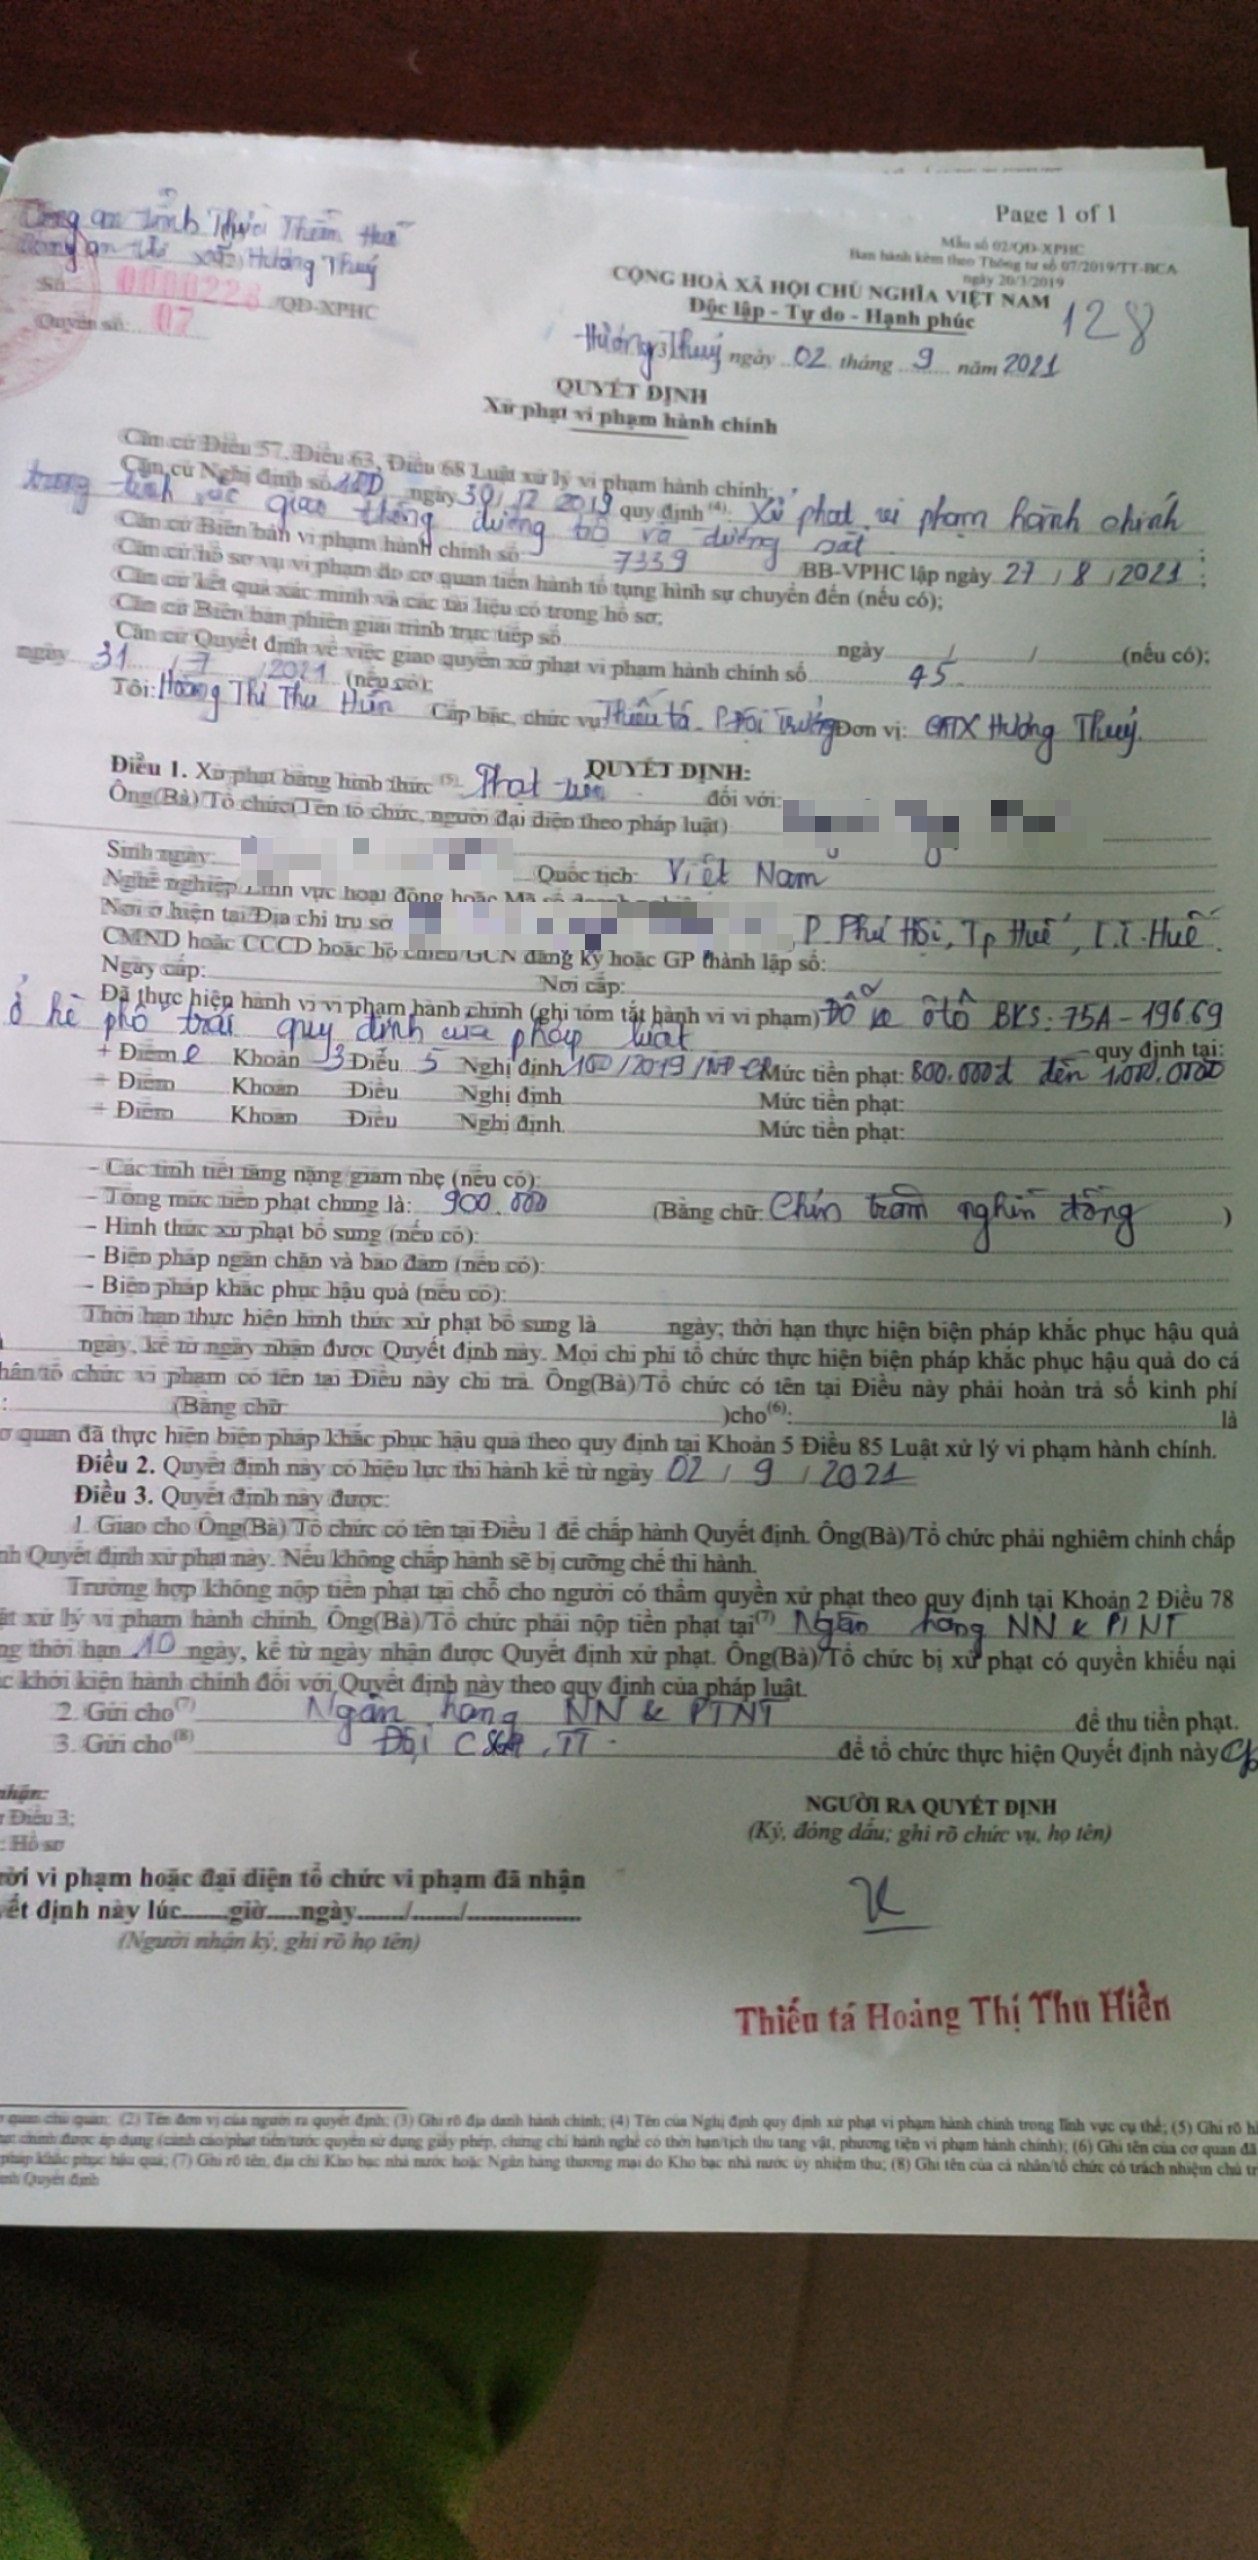 Page 1 of 1
Công an tỉnh Thừa Thiên Huế
Công an thị xã Hương Thuỷ
Mẫu số 02/QĐ-XPHC
Ban hành kèm theo Thông tư số 07/2019/TT-BCA
ngày 20/3/2019
Số: 0000228 /QĐ-XPHC
CỘNG HOÀ XÃ HỘI CHỦ NGHĨA VIỆT NAM
Quyển số: 07
Độc lập - Tự do - Hạnh phúc
128
Hương Thuỷ ngày 02 tháng 9 năm 2021
QUYẾT ĐỊNH
Xử phạt vi phạm hành chính
Căn cứ Điều 57, Điều 63, Điều 68 Luật xử lý vi phạm hành chính;
Căn cứ Nghị định số 100 ngày 30/12/2019 quy định (4): Xử phạt vi phạm hành chính
trong lĩnh vực giao thông đường bộ và đường sắt
Căn cứ Biên bản vi phạm hành chính số 7339 /BB-VPHC lập ngày 27/8/2021;
Căn cứ hồ sơ vụ vi phạm do cơ quan tiến hành tố tụng hình sự chuyển đến (nếu có);
Căn cứ kết quả xác minh và các tài liệu có trong hồ sơ;
Căn cứ Biên bản phiên giải trình trực tiếp số ngày / / (nếu có);
Căn cứ Quyết định về việc giao quyền xử phạt vi phạm hành chính số 45
ngày 31/7/2021 (nếu có);
Tôi: Hoàng Thị Thu Hiền Cấp bậc, chức vụ Thiếu tá - P.Đội Trưởng Đơn vị: CATX Hương Thuỷ
QUYẾT ĐỊNH:
Điều 1. Xử phạt bằng hình thức (5): Phạt tiền đối với:
Ông(Bà)/Tổ chức(Tên tổ chức, người đại diện theo pháp luật)
Sinh ngày: Quốc tịch: Việt Nam
Nghề nghiệp/Lĩnh vực hoạt động hoặc Mã số
Nơi ở hiện tại/Địa chỉ trụ sở P. Phú Hội, Tp Huế, T.T. Huế
CMND hoặc CCCD hoặc hộ chiếu/GCN đăng ký hoặc GP thành lập số:
Ngày cấp: Nơi cấp:
Đã thực hiện hành vi vi phạm hành chính (ghi tóm tắt hành vi vi phạm) Đỗ xe ôtô BKS: 75A-196.69
ở hè phố trái quy định của pháp luật quy định tại:
+ Điểm e Khoản 3 Điều 5 Nghị định 100/2019/NĐ-CP Mức tiền phạt: 800.000đ đến 1.000.000đ
+ Điểm Khoản Điều Nghị định Mức tiền phạt:
+ Điểm Khoản Điều Nghị định Mức tiền phạt:
- Các tình tiết tăng nặng/giảm nhẹ (nếu có):
- Tổng mức tiền phạt chung là: 900.000 (Bằng chữ: Chín trăm nghìn đồng )
- Hình thức xử phạt bổ sung (nếu có):
- Biện pháp ngăn chặn và bảo đảm (nếu có):
- Biện pháp khắc phục hậu quả (nếu có):
Thời hạn thực hiện hình thức xử phạt bổ sung là ngày; thời hạn thực hiện biện pháp khắc phục hậu quả
ngày, kể từ ngày nhận được Quyết định này. Mọi chi phí tổ chức thực hiện biện pháp khắc phục hậu quả do cá
hân/tổ chức vi phạm có tên tại Điều này chi trả. Ông(Bà)/Tổ chức có tên tại Điều này phải hoàn trả số kinh phí
: (Bằng chữ )cho(6): là
ơ quan đã thực hiện biện pháp khắc phục hậu quả theo quy định tại Khoản 5 Điều 85 Luật xử lý vi phạm hành chính.
Điều 2. Quyết định này có hiệu lực thi hành kể từ ngày 02/9/2021
Điều 3. Quyết định này được:
1. Giao cho Ông(Bà)/Tổ chức có tên tại Điều 1 để chấp hành Quyết định. Ông(Bà)/Tổ chức phải nghiêm chỉnh chấp
nh Quyết định xử phạt này. Nếu không chấp hành sẽ bị cưỡng chế thi hành.
Trường hợp không nộp tiền phạt tại chỗ cho người có thẩm quyền xử phạt theo quy định tại Khoản 2 Điều 78
ật xử lý vi phạm hành chính, Ông(Bà)/Tổ chức phải nộp tiền phạt tại(7) Ngân hàng NN & PTNT
ng thời hạn 10 ngày, kể từ ngày nhận được Quyết định xử phạt. Ông(Bà)/Tổ chức bị xử phạt có quyền khiếu nại
c khởi kiện hành chính đối với Quyết định này theo quy định của pháp luật.
2. Gửi cho(7) Ngân hàng NN & PTNT để thu tiền phạt.
3. Gửi cho(8) Đội CSGT, TT để tổ chức thực hiện Quyết định này
nhận:
NGƯỜI RA QUYẾT ĐỊNH
Điều 3;
(Ký, đóng dấu; ghi rõ chức vụ, họ tên)
: Hồ sơ
ười vi phạm hoặc đại diện tổ chức vi phạm đã nhận
yết định này lúc......giờ......ngày....../....../......
(Người nhận ký, ghi rõ họ tên)
Thiếu tá Hoàng Thị Thu Hiền
quan chủ quản; (2) Tên đơn vị của người ra quyết định; (3) Ghi rõ địa danh hành chính; (4) Tên của Nghị định quy định xử phạt vi phạm hành chính trong lĩnh vực cụ thể; (5) Ghi rõ h
hạt chính được áp dụng (cảnh cáo/phạt tiền/tước quyền sử dụng giấy phép, chứng chỉ hành nghề có thời hạn/tịch thu tang vật, phương tiện vi phạm hành chính); (6) Ghi tên của cơ quan đã
pháp khắc phục hậu quả; (7) Ghi rõ tên, địa chỉ Kho bạc nhà nước hoặc Ngân hàng thương mại do Kho bạc nhà nước ủy nhiệm thu; (8) Ghi tên của cá nhân/tổ chức có trách nhiệm chủ tr
ành Quyết định